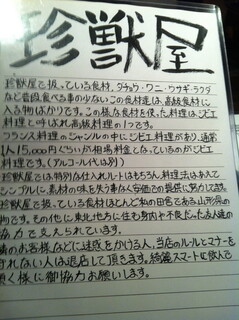 珍獣屋
珍獣屋で扱っている食材、ダチョウ・ワニ・ウサギ・ラクダ
など普段食べる事の少ないこの食材達は、高級食材に
入る物ばかりです。この様な食材を使った料理は、ジビエ
料理と呼ばれ高級料理の1つです。
フランス料理のジャンルの中にジビエ料理があり、通常
1人15,000円くらいが相場料金となっているのがジビエ
料理です。(アルコール代は別)
珍獣屋では特別な仕入れルートはもちろん、料理法はあえて
シンプルに素材の味を失う事なく安価での提供に努力してます。
珍獣屋で扱っている食材ほとんど私の田舎である山形県の
物です。その他に東北地方に住む身内や不良だった友人達の
協力で支えられています。
隣のお客様などに迷惑をかける人、当店のルールとマナーを
守れない人は退店して頂きます。綺麗スマートに飲んで
頂く様に御協力お願いします。